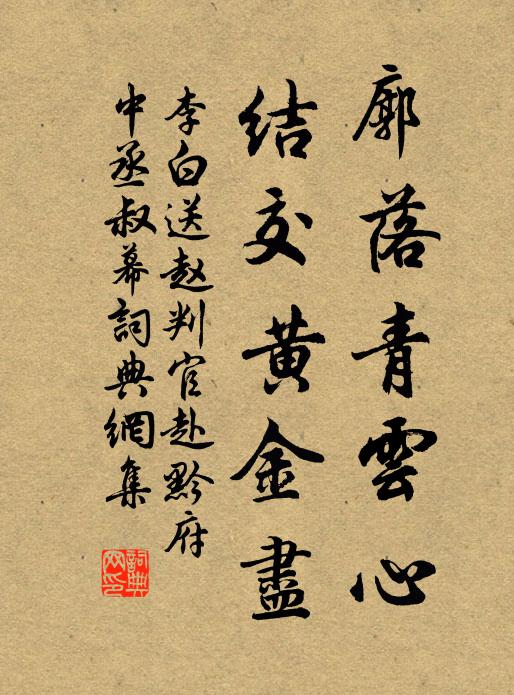 廓落青雲心
結交黄金盡
李白送赵判官赴黔府
中丞叔幕詞典網集
詞典網印